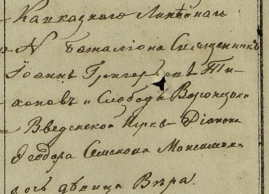 Кавказкаго Линѣйнаго
N Баталіона Священникъ
Іоаннъ Григорьевъ Ти
ховъ и Слободы Воронцовки
Введенской Церкви Діакона
Ѳеодора Семенова
дочь дѣвица Вѣра